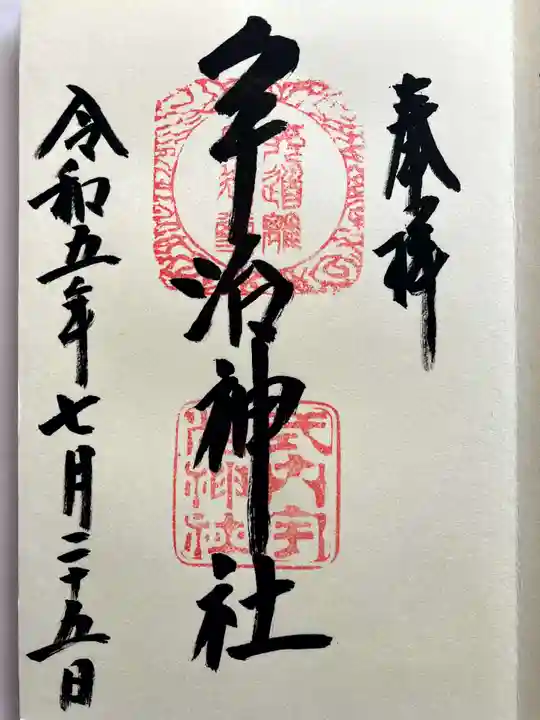 奉拝
宇治神社
令和五年七月二十五日
式内宇
治神社